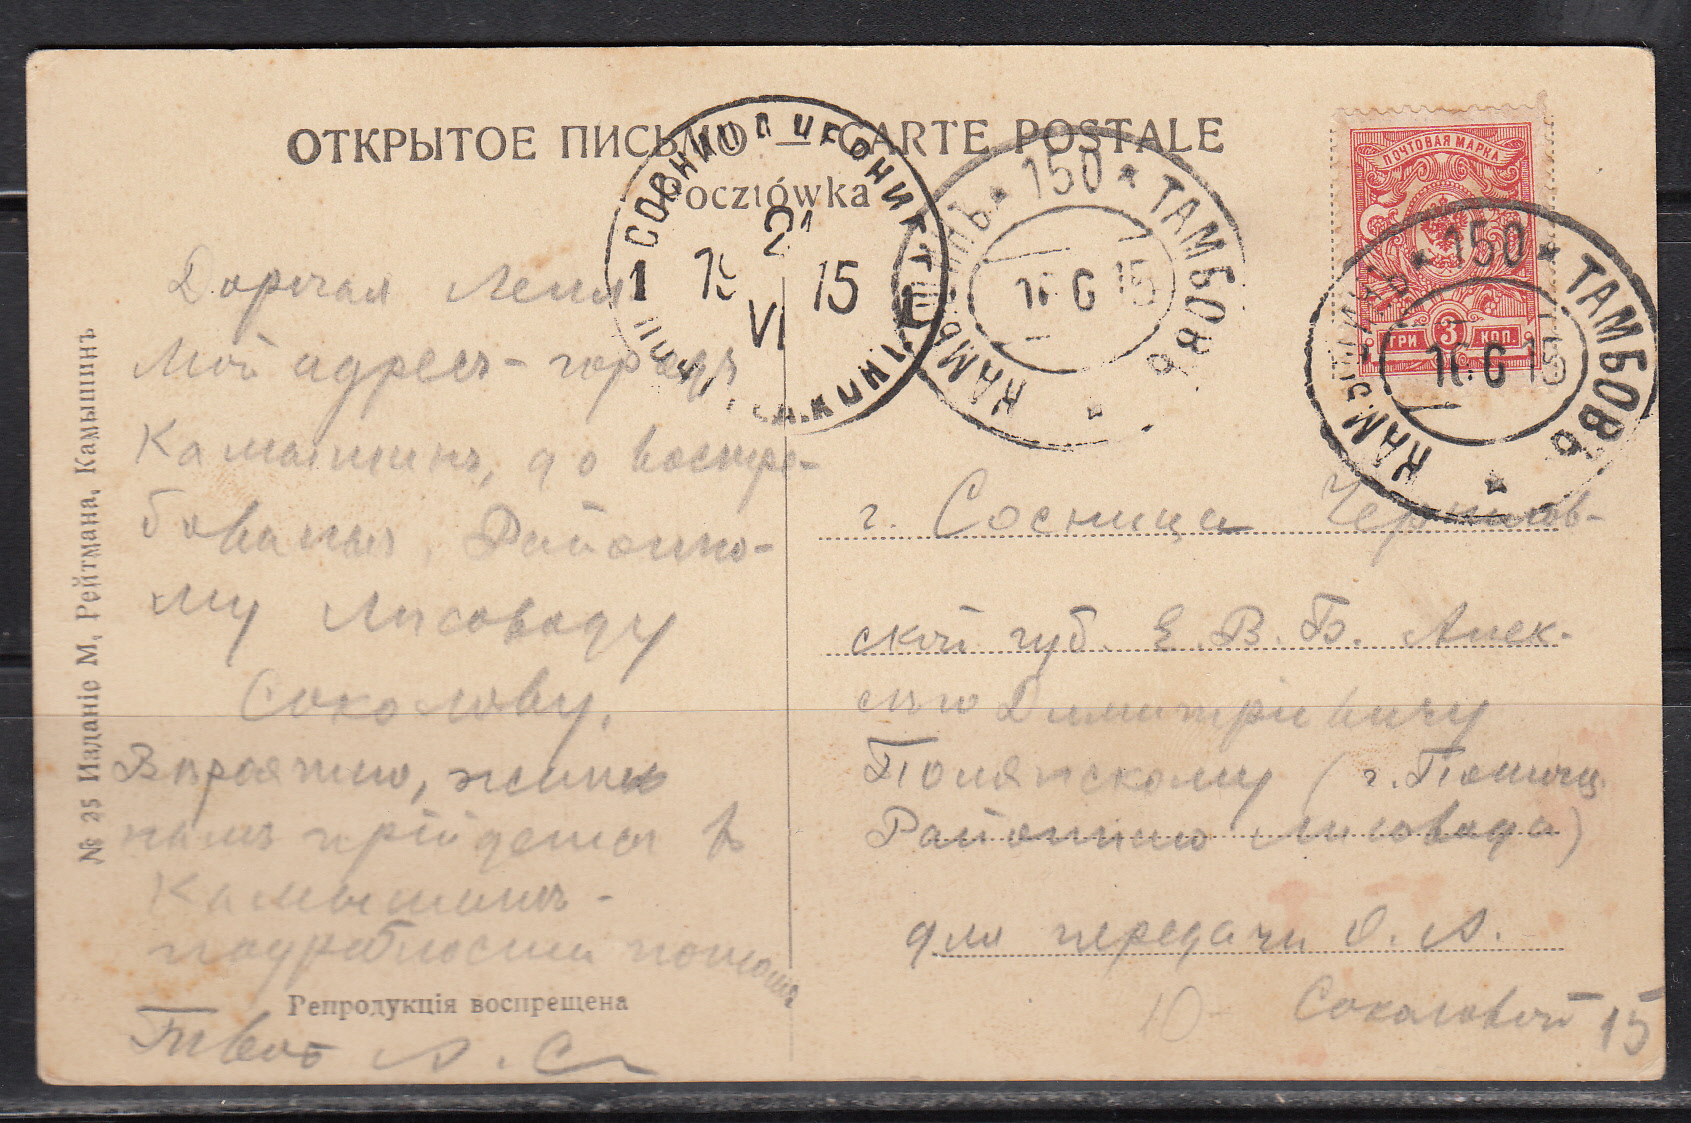 ОТКРЫТОЕ ПИСЬМО — CARTE POSTALE
Pocztówka
ПОЧТОВАЯ МАРКА
ТРИ 3 КОП.
КАМЫШИНЪ * 150 * ТАМБОВЪ *
16 6 15
КАМЫШИНЪ * 150 * ТАМБОВЪ *
16 6 15
СОСНИЦА ЧЕРНИГ.
21
VI
15
Дорогая Леля
Мой адресъ - городъ
Камышинъ, до востре-
бованья, Районно-
му Лѣсоводу
Соколову.
Вѣроятно, жить
намъ прійдется въ
Камышинѣ -
подробности потомъ
Твой А. С.
г. Сосница Чернигов-
ской губ. Е. В. Б. Алек-
сѣю Димитріевичу
Полянскому (г. Помощ.
Районнаго Лѣсовода)
для передачи О. А.
Соколовой
10-
15
№ 25 Изданіе М. Рейтмана, Камышинъ
Репродукція воспрещена